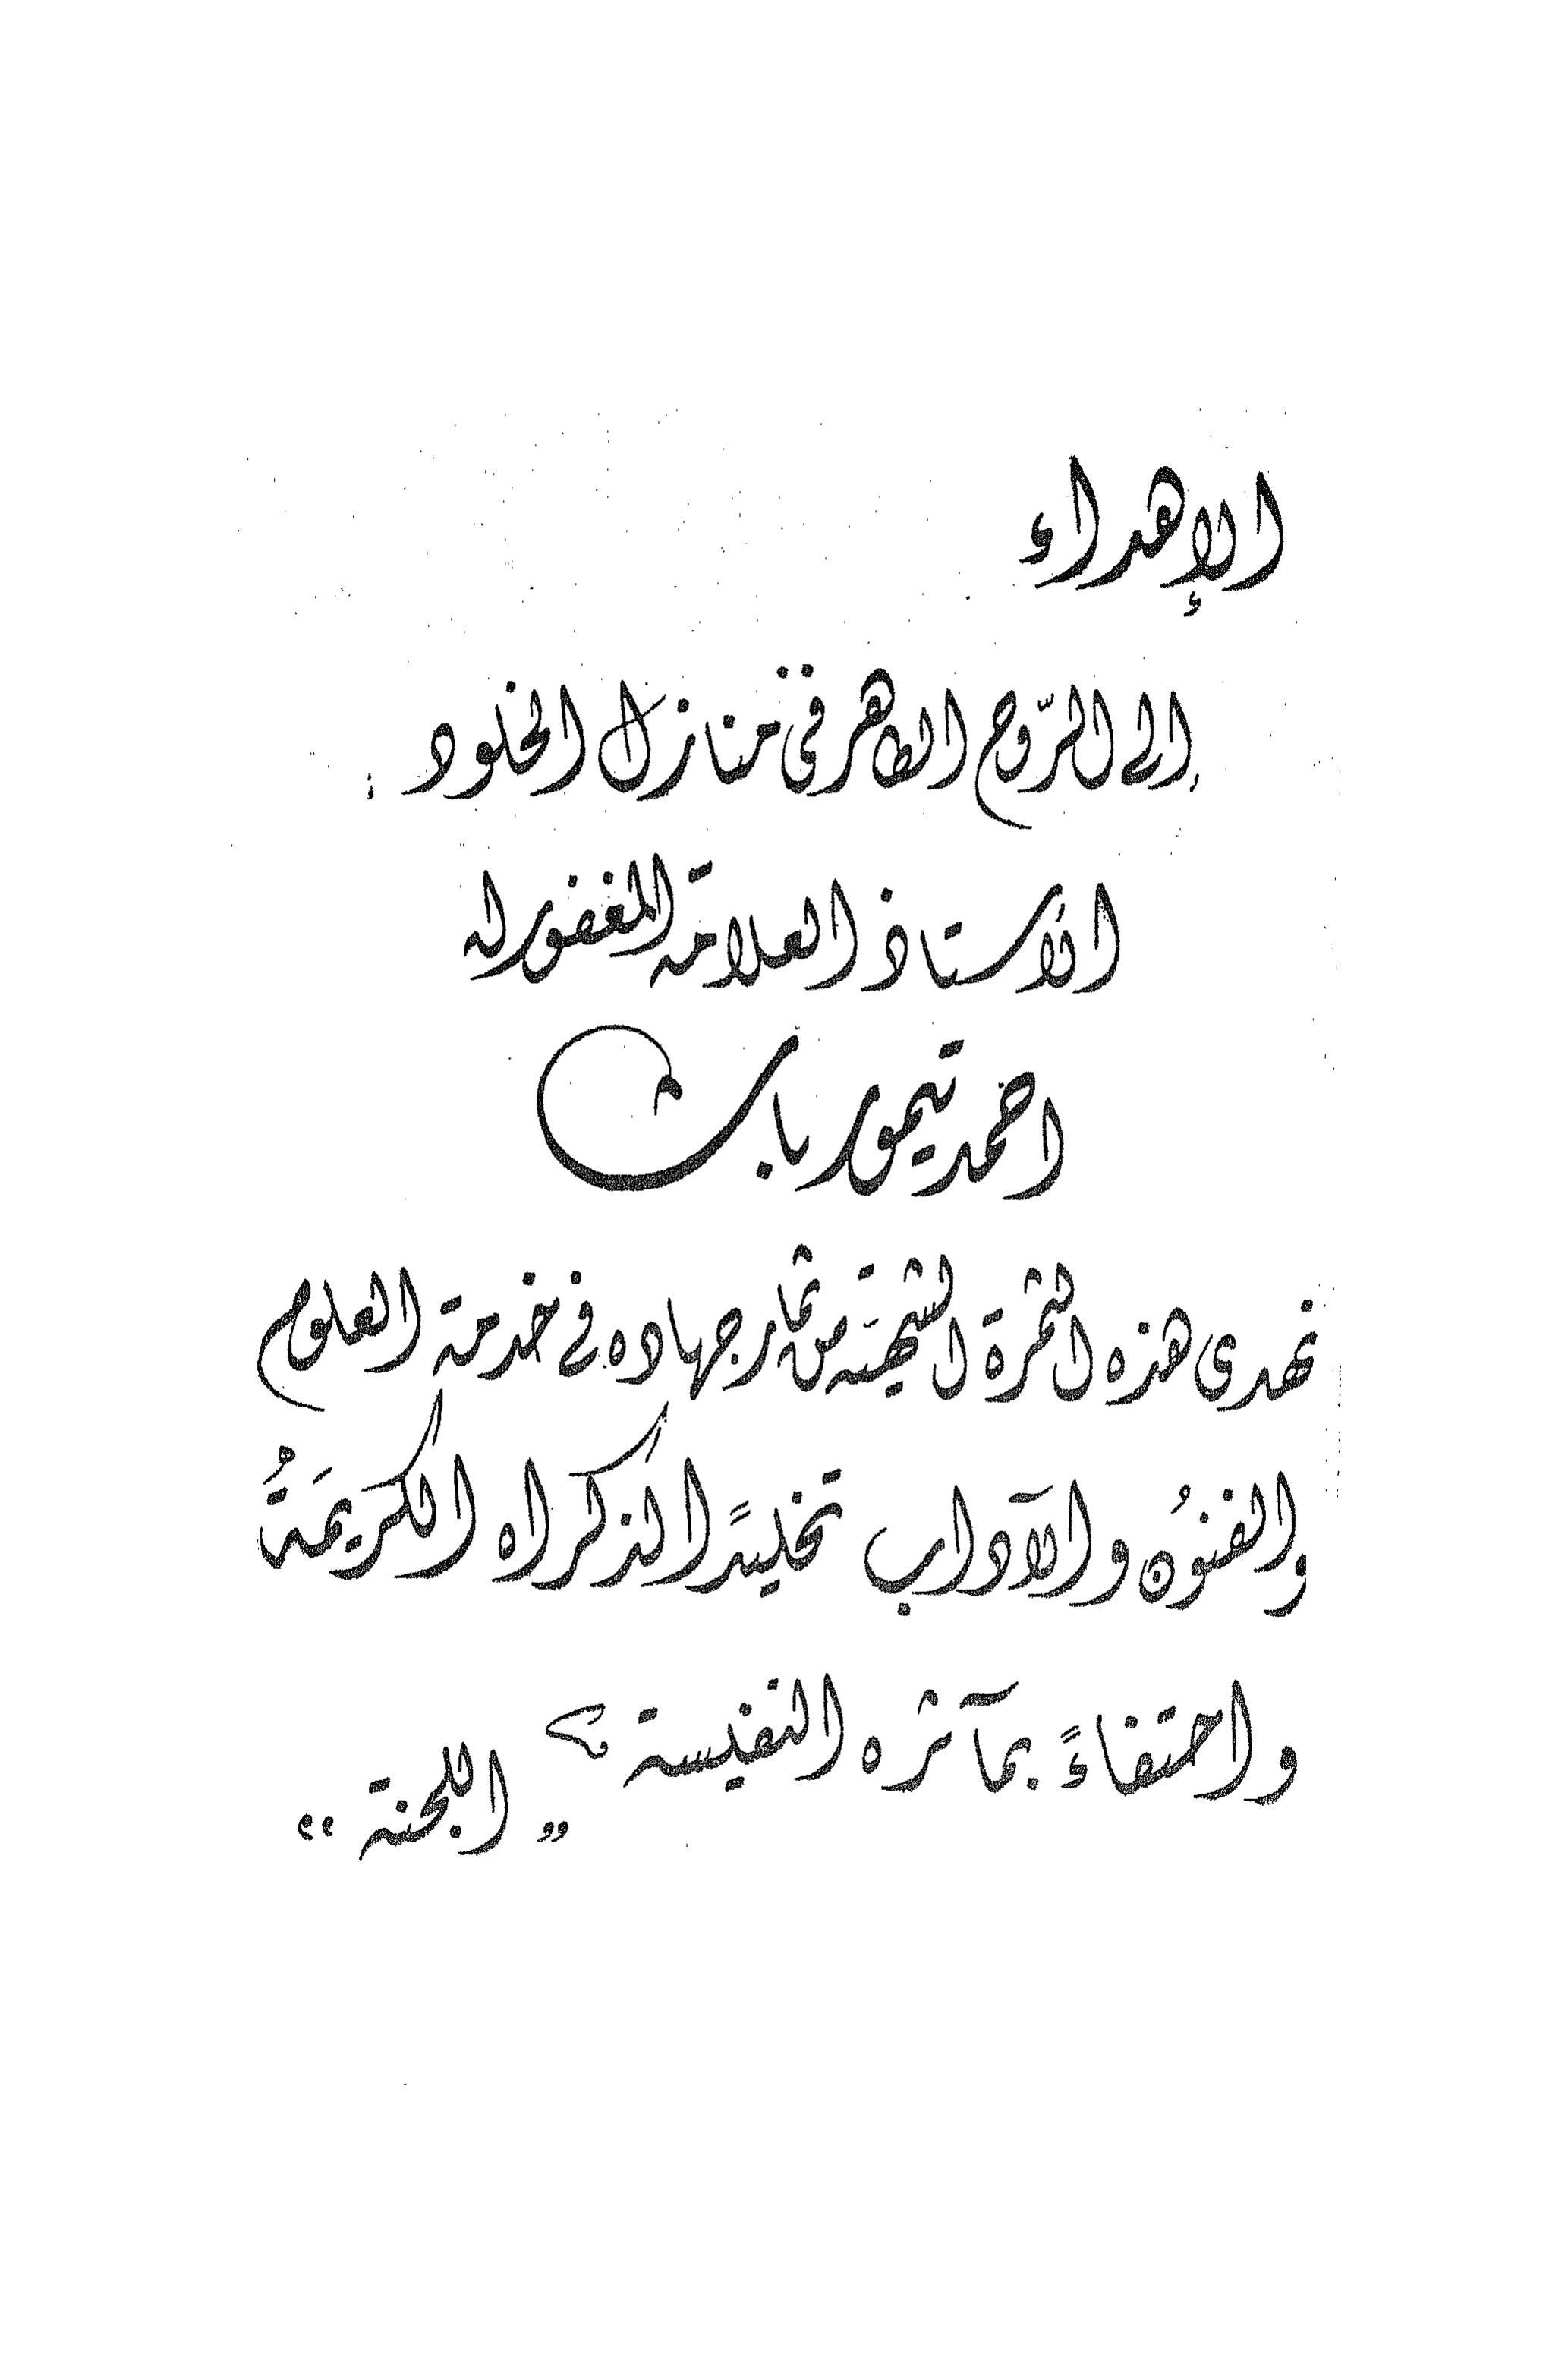 الإهداء
إلى الرّوح الطاهر فى منازل الخلود :
الأستاذ العلامة المغفور له
احمد تيمور باشا
نهدى هذه الثمرة الشهيّة من ثمار جهاده فى خدمة العلوم
والفنوُن والآداب تخليدًا لذكراه الكريمَةُ
واحتفاءً بمآثره النفيسة
„ اللجنة “